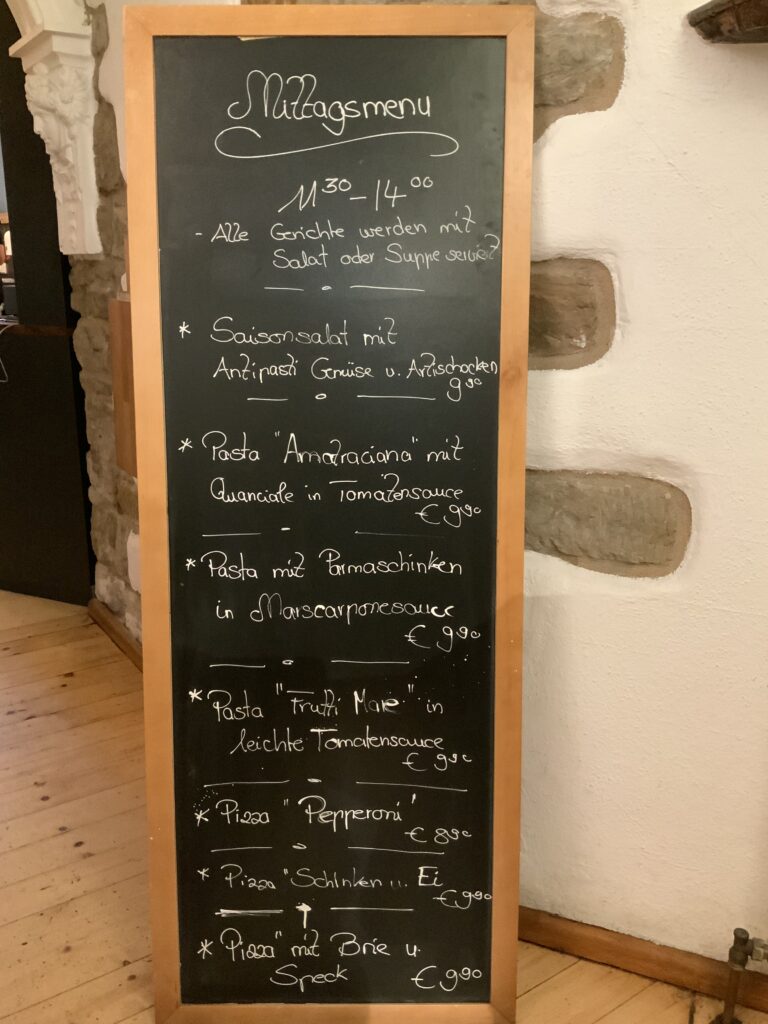 Mittagsmenu
11 30 - 14 00
- Alle Gerichte werden mit
Salat oder Suppe serviert
* Saisonsalat mit
Antipasti Gemüse u. Artischocken
9 90
* Pasta "Amatraciana" mit
Guanciale in Tomatensauce
€ 9 90
* Pasta mit Parmaschinken
in Marscarponesauce
€ 9 90
* Pasta "Frutti Mare" in
leichte Tomatensauce
€ 9 90
* Pizza "Pepperoni"
€ 8 90
* Pizza "Schinken u. Ei
€ 9 90
* Pizza" mit Brie u.
Speck € 9 90